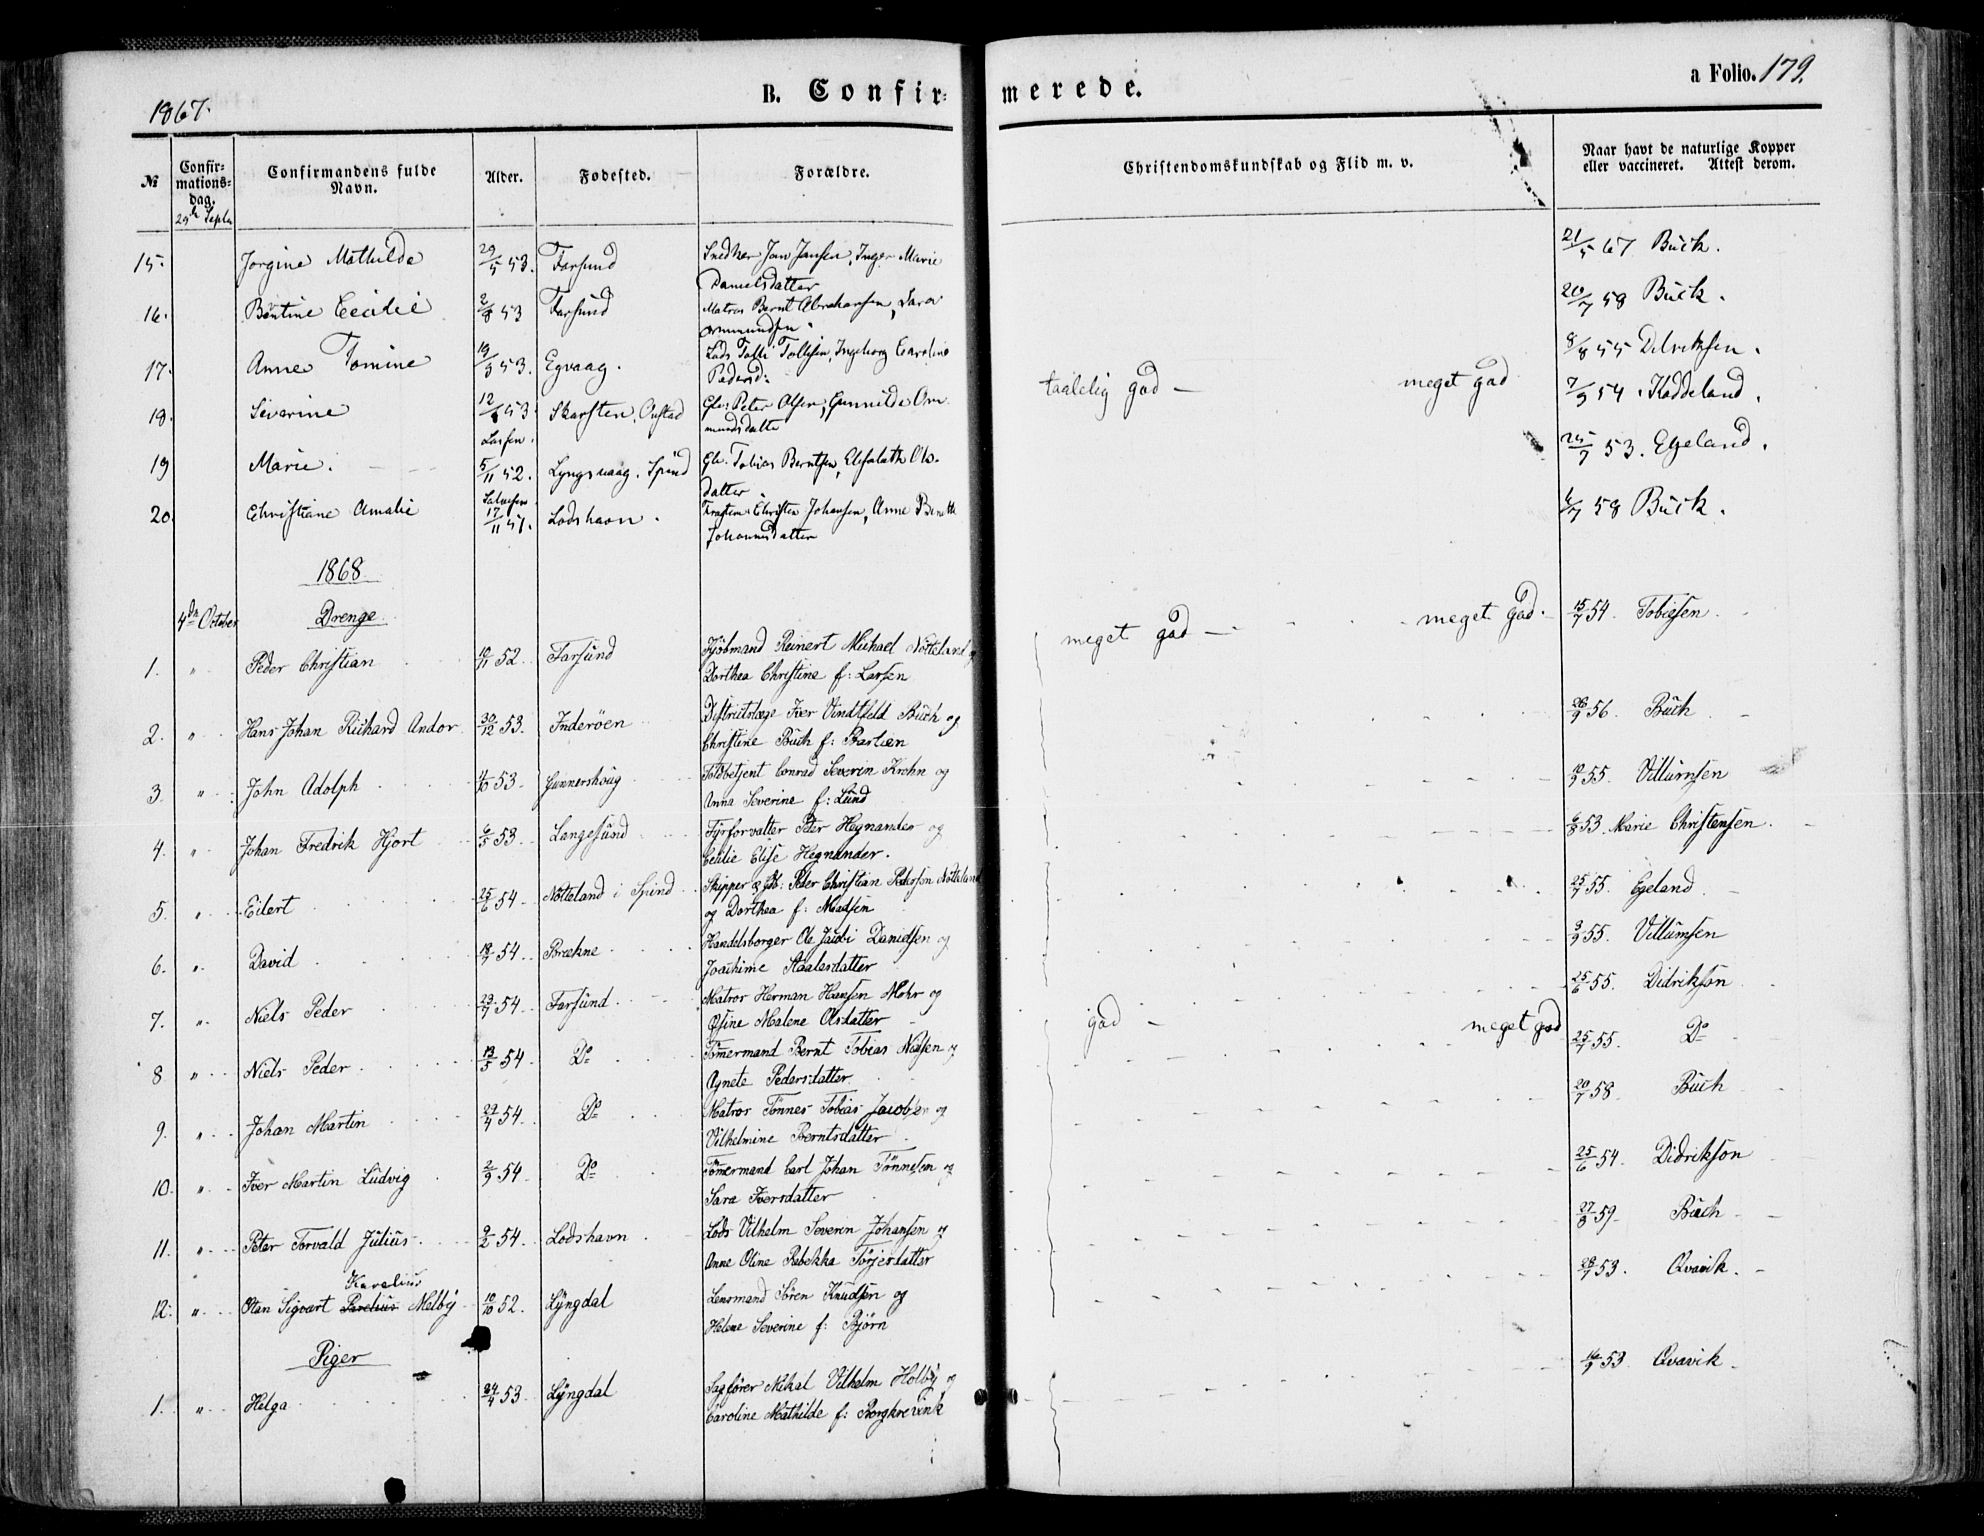 1867.
B. Confir-
merede.
a Folio. 179.
№
Confir-
mations-
dag.
Confirmandens fulde
Navn.
Alder.
Fødested.
Forældre.
Christendomskundskab og Flid m. v.
Naar havt de naturlige Kopper
eller vaccineret. Attest derom.
29de Septr
15. Jorgine Mathilde 29/5 53. Farsund Snedker Jon Jansen, Inger Marie 21/5 67 Buch.
Danielsdatter
16. Bentine Cecilie 2/8 53 Farsund Matros Bernt Abrahamsen, Sara 20/7 58 Buch.
17. Anne Tomine 19/3 53. Egvaag. Lods Tolli Tollisen, Ingeborg Caroline 8/8 55 Didriksen.
Pedersd:
taalelig god — meget god
18. Severine 12/6 53. Skarsten, Peter Olsen, Gunnilde Om- 7/9 54. Haddeland.
mundsdatter
19 Marie. 5/11 52. Lyngsvaag. Spind Tobias Berntsen, Elisabeth Ols- 25/7 53. Egeland.
datter
20. Christiane Amalie 17/11 51. Lodshavn. Christen Johansen, Anne 58 Buch.
Johannesdatter
1868
4de October Drenge.
meget god — meget god. 15/7 54. Tobiesen
1. " Peder Christian 10/11 52. Farsund Kjøbmand Reinert Michael Nøtteland og
Dorthea Christine f: Larsen
2. " Hans Johan Richard Andor 30/12 53. Inderöen Districtslæge Iver Vindtfeld Buch og 28/9 56. Buch
Christine Buch f: Bastien
3. " John Adolph 53. Gunnershoug Toldbetjent Conrad Severin Krehn og 55. Villumsen
Anna Severine f: Lund
4. " Johan Fredrik Hjort 6/5 53. Langesund Fyrforvalter Peter Hegnander og 6/8 53. Marie Christensen.
Cecilie Elise Hegnander.
5. " Eilert 25/6 54 Nøtteland i Spind Skipper Peter Christian Pedersen Nøtteland 25/7 55. Egeland
og Dorthea f: Madsen
6. " David 18/7 54 Brækne Handelsborger Ole Jacobi Danielsen og 3/9 55. Villumsen
Joachime Staalesdatter
7. " Niels Peder 29/7 54 Farsund Matros Herman Hansen Mohr og 25/6 55. Didriksen
Osine Malene Olsdatter
god — meget god
8 " Niels Peder 13/5 54 Do Tømmermand Bernt Tobias Nilsen og 25/7 55. Do
Agnete Pedersdatter
9. " Johan Martin 27/4 54 Do Matros Tönnes Tobias Jacobsen og 20/7 58. Buch
Vilhelmine Berntsdatter
10. " Iver Martin Ludvig 2/9 54. Do Tømmermand Carl Johan Tönnesen og 25/6 54. Didrikson
Sara Iversdatter
11. " Peter Torvald Julius 9/2 54. Lodshavn Lods Vilhelm Severin Johansen og 27/8 59. Buch
Anne Oline Rebekka Torjersdatter
Karelius
12. " Otan Sigvart Parelius Melby 10/10 52. Lyngdal Lensmand Sören Knudsen og 28/7 53. Qvavik.
Helene Severine f: Bjørn
Piger
1. " Helga 24/4 53. Lyngdal Sagfører Mikal Vilhelm Holby og 16/9 53. Qvavik
Caroline Mathilde f: Borgkrevink